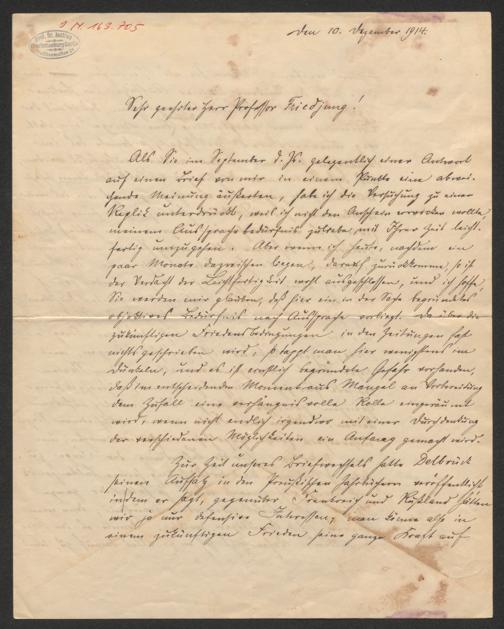 J. N. 163.705
Den 10. Dezember 1914.
Sehr geehrter Herr Professor Friedjung!
Als Sie im September d. Js. gelegentlich einer Antwort
auf einen Brief von mir in einem Punkte eine abwei-
chende Meinung äußerten, habe ich die Versuchung zu einer
Replik unterdrückt, weil ich nicht den Anschein erwecken wollte,
meinem Aussprachebedürfnis zuliebe, mit Ihrer Zeit leicht-
fertig umzugehen. Aber wenn ich heute, nachdem ein
paar Monate dazwischen liegen, darauf zurückkomme, so ist
der Verdacht der Leichtfertigkeit wohl ausgeschlossen, und ich hoffe,
Sie werden mir glauben, daß hier ein in der Sache begründetes
objektives Bedürfnis nach Aussprache vorliegt. Da über die
zukünftigen Friedensbedingungen in den Zeitungen fast
nichts geschrieben wird, so tappt man hier wenigstens im
Dunkeln, und es ist ernstlich begründete Gefahr vorhanden,
daß im entscheidenden Moment aus Mangel an Vorbereitung
dem Zufall eine verhängnisvolle Rolle eingeräumt
wird, wenn nicht endlich irgendwo mit einer Durchdenkung
der verschiedenen Möglichkeiten ein Anfang gemacht wird.
Zur Zeit unseres Briefwechsels hatte Delbrück
seinen Aufsatz in den Preußischen Jahrbüchern veröffentlicht
indem er sagt, gegenüber Frankreich und Rußland hätten
wir ja nur defensive Interessen, man könne also in
einem zukünftigen Frieden seine ganze Kraft auf